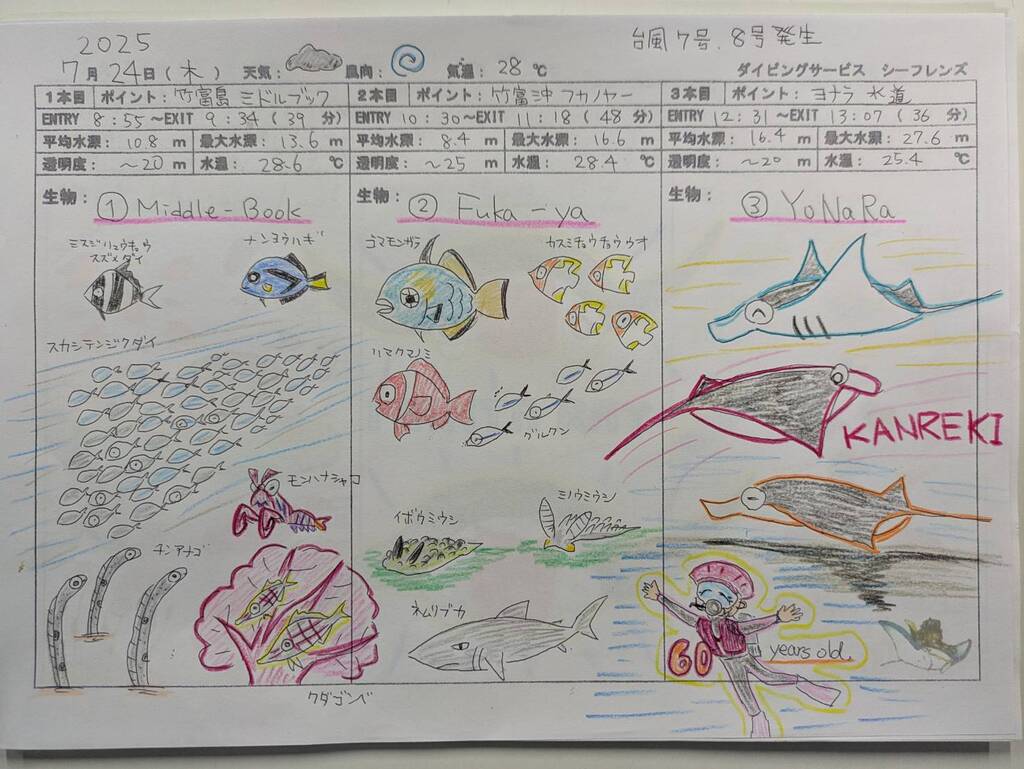 2025
台風7号、8号発生
7月24日(木) 天気: 風向: 気温: 28 ℃
ダイビングサービス シーフレンズ
1本目 ポイント: 竹富島 ミドルブック
ENTRY 8:55 ~EXIT 9:34 (39 分)
平均水深: 10.8 m 最大水深: 13.6 m
透明度: ~20 m 水温: 28.6 ℃
生物: ① Middle-Book
ミスジリュウキュウ
スズメダイ
ナンヨウハギ
スカシテンジクダイ
モンハナシャコ
チンアナゴ
クダゴンベ
2本目 ポイント: 竹富沖 フカノヤー
ENTRY 10:30 ~EXIT 11:18 (48 分)
平均水深: 8.4 m 最大水深: 16.6 m
透明度: ~25 m 水温: 28.4 ℃
生物: ② Fuka-ya
ゴマモンガラ
カスミチョウチョウウオ
ハマクマノミ
グルクン
イボウミウシ
ミノウミウシ
ネムリブカ
3本目 ポイント: ヨナラ水道
ENTRY 12:31 ~EXIT 13:07 (36 分)
平均水深: 16.4 m 最大水深: 27.6 m
透明度: ~20 m 水温: 25.4 ℃
生物: ③ YoNaRa
KANREKI
60 years old.